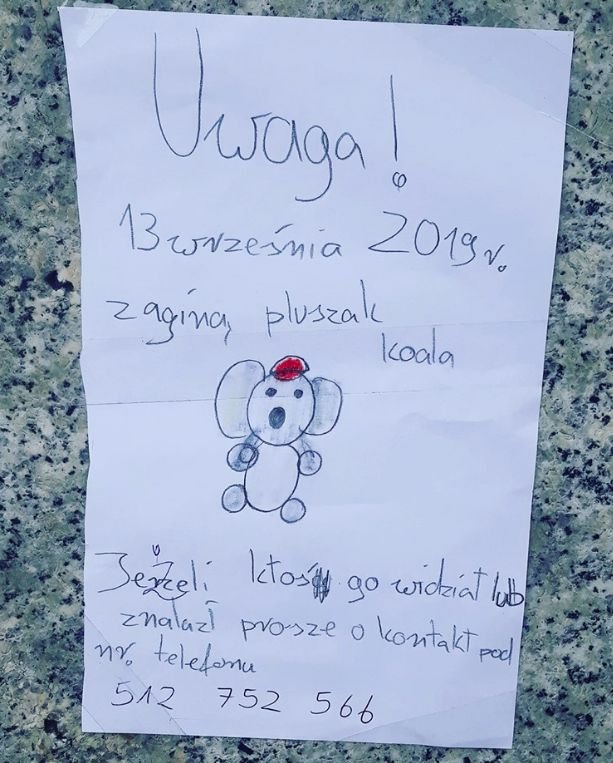 Uwaga!
13 września 2019 r.
zaginą pluszak
koala
Jeżeli ktoś go widział lub
znalazł prosze o kontakt pod
nr. telefonu
512 752 566